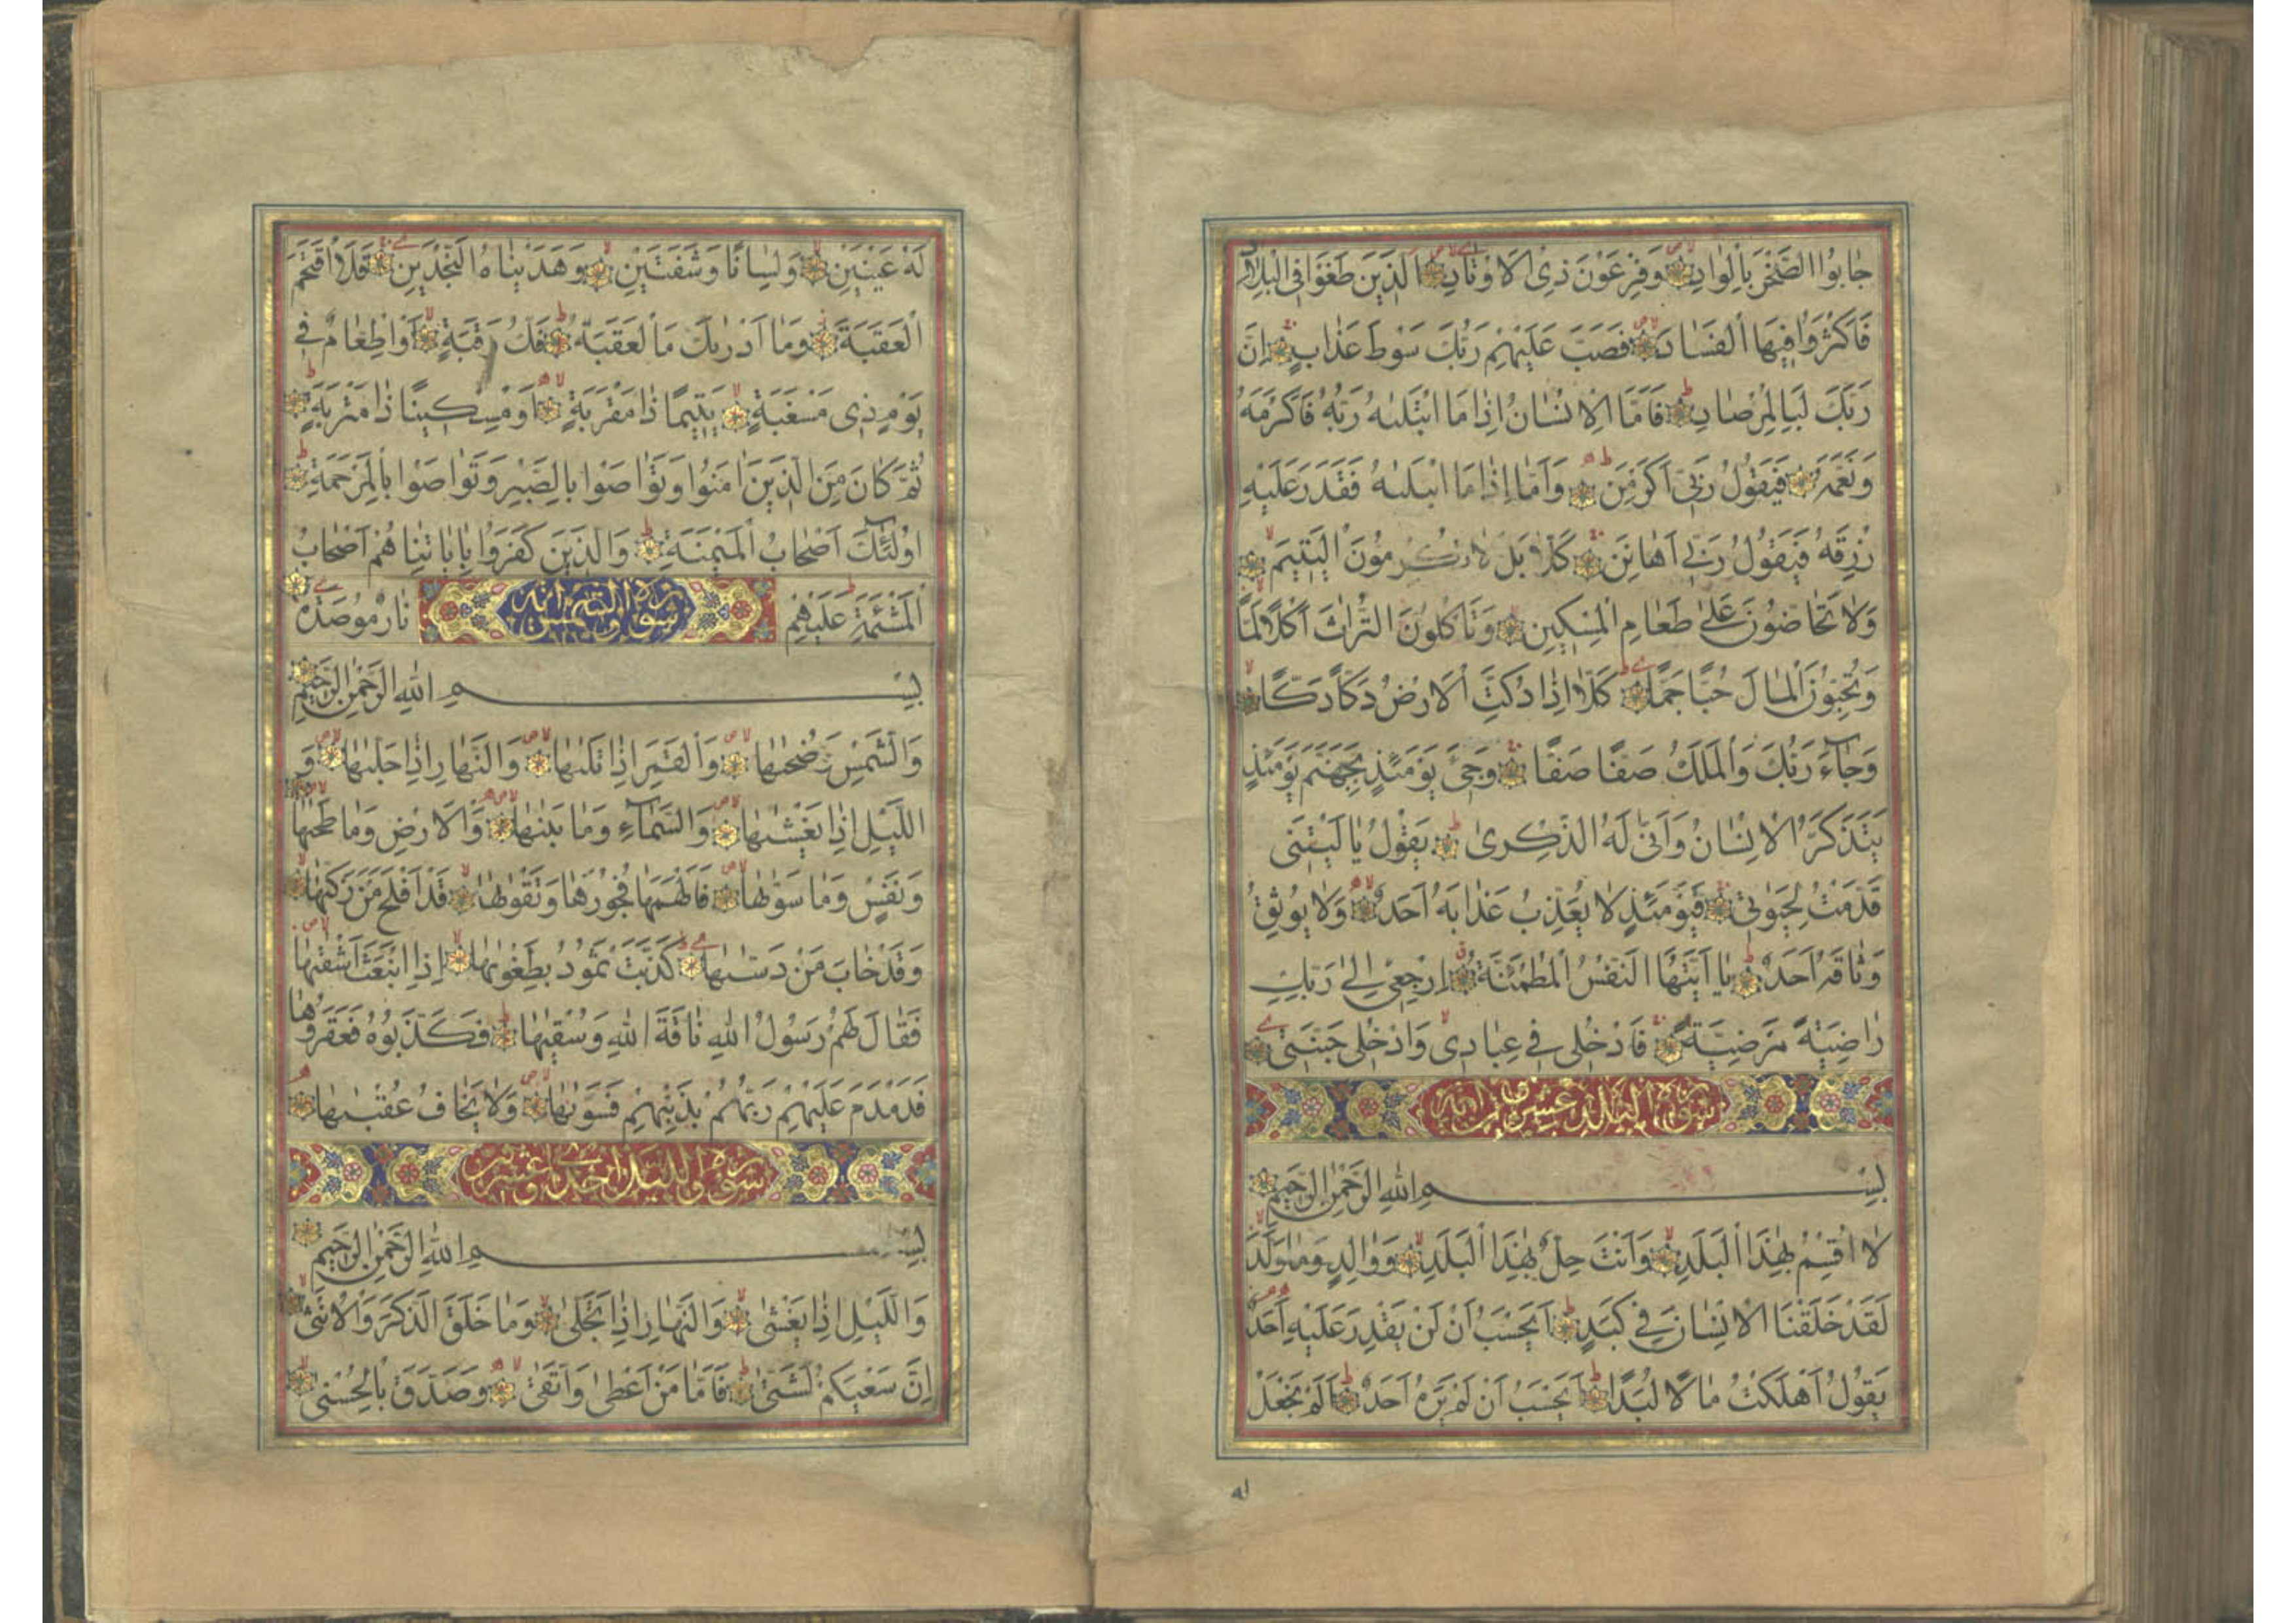 جٰابُوا الصَّخْرَ بِالْوٰادِ وَفِرْعَوْنَ ذِى الْاَوْتٰادِ الَّذِينَ طَغَوْا فِى الْبِلٰادِ
فَاَكْثَرُوا فِيهَا الْفَسٰادَ فَصَبَّ عَلَيْهِمْ رَبُّكَ سَوْطَ عَذٰابٍ اِنَّ
رَبَّكَ لَبِالْمِرْصٰادِ فَاَمَّا الْاِنْسٰانُ اِذٰا مَا ابْتَلٰىهُ رَبُّهُ فَاَكْرَمَهُ
وَنَعَّمَهُ فَيَقُولُ رَبِّى اَكْرَمَنِ وَاَمّٰا اِذٰا مَا ابْتَلٰىهُ فَقَدَرَ عَلَيْهِ
رِزْقَهُ فَيَقُولُ رَبِّى اَهٰانَنِ كَلّٰا بَلْ لٰا تُكْرِمُونَ الْيَتِيمَ
وَلٰا تَحٰاضُّونَ عَلىٰ طَعٰامِ الْمِسْكِينِ وَتَأْكُلُونَ التُّرٰاثَ اَكْلًا لَمًّا
وَتُحِبُّونَ الْمٰالَ حُبًّا جَمًّا كَلّٰا اِذٰا دُكَّتِ الْاَرْضُ دَكًّا دَكًّا
وَجٰاۤءَ رَبُّكَ وَالْمَلَكُ صَفًّا صَفًّا وَجِىۤءَ يَوْمَئِذٍ بِجَهَنَّمَ يَوْمَئِذٍ
يَتَذَكَّرُ الْاِنْسٰانُ وَاَنّٰى لَهُ الذِّكْرىٰ يَقُولُ يٰا لَيْتَنِى
قَدَّمْتُ لِحَيٰوتِى فَيَوْمَئِذٍ لٰا يُعَذِّبُ عَذٰابَهُ اَحَدٌ وَلٰا يُوثِقُ
وَثٰاقَهُ اَحَدٌ يٰا اَيَّتُهَا النَّفْسُ الْمُطْمَئِنَّةُ اِرْجِعِى اِلىٰ رَبِّكِ
رٰاضِيَةً مَرْضِيَّةً فَادْخُلِى فِى عِبٰادِى وَادْخُلِى جَنَّتِى
سورة البلد عشرون اية
بِسْمِ اللّٰهِ الرَّحْمٰنِ الرَّحِيمِ
لٰا اُقْسِمُ بِهٰذَا الْبَلَدِ وَاَنْتَ حِلٌّ بِهٰذَا الْبَلَدِ وَوٰالِدٍ وَمٰا وَلَدَ
لَقَدْ خَلَقْنَا الْاِنْسٰانَ فِى كَبَدٍ اَيَحْسَبُ اَنْ لَنْ يَقْدِرَ عَلَيْهِ اَحَدٌ
يَقُولُ اَهْلَكْتُ مٰالًا لُبَدًا اَيَحْسَبُ اَنْ لَمْ يَرَهُ اَحَدٌ اَلَمْ نَجْعَلْ
لَهُ عَيْنَيْنِ وَلِسٰانًا وَشَفَتَيْنِ وَهَدَيْنٰاهُ النَّجْدَيْنِ فَلَا اقْتَحَمَ
الْعَقَبَةَ وَمٰا اَدْرٰىكَ مَا الْعَقَبَةُ فَكُّ رَقَبَةٍ اَوْ اِطْعٰامٌ فِى
يَوْمٍ ذِى مَسْغَبَةٍ يَتِيمًا ذٰا مَقْرَبَةٍ اَوْ مِسْكِينًا ذٰا مَتْرَبَةٍ
ثُمَّ كٰانَ مِنَ الَّذِينَ اٰمَنُوا وَتَوٰاصَوْا بِالصَّبْرِ وَتَوٰاصَوْا بِالْمَرْحَمَةِ
اُولٰۤئِكَ اَصْحٰابُ الْمَيْمَنَةِ وَالَّذِينَ كَفَرُوا بِاٰيٰاتِنٰا هُمْ اَصْحٰابُ
الْمَشْئَمَةِ عَلَيْهِمْ نٰارٌ مُوصَدَةٌ
سورة والشمس
بِسْمِ اللّٰهِ الرَّحْمٰنِ الرَّحِيمِ
وَالشَّمْسِ وَضُحٰىهٰا وَالْقَمَرِ اِذٰا تَلٰىهٰا وَالنَّهٰارِ اِذٰا جَلّٰىهٰا وَ
اللَّيْلِ اِذٰا يَغْشٰىهٰا وَالسَّمٰاۤءِ وَمٰا بَنٰىهٰا وَالْاَرْضِ وَمٰا طَحٰىهٰا
وَنَفْسٍ وَمٰا سَوّٰىهٰا فَاَلْهَمَهٰا فُجُورَهٰا وَتَقْوٰىهٰا قَدْ اَفْلَحَ مَنْ زَكّٰىهٰا
وَقَدْ خٰابَ مَنْ دَسّٰىهٰا كَذَّبَتْ ثَمُودُ بِطَغْوٰىهٰا اِذِ انْبَعَثَ اَشْقٰىهٰا
فَقٰالَ لَهُمْ رَسُولُ اللّٰهِ نٰاقَةَ اللّٰهِ وَسُقْيٰهٰا فَكَذَّبُوهُ فَعَقَرُوهٰا
فَدَمْدَمَ عَلَيْهِمْ رَبُّهُمْ بِذَنْبِهِمْ فَسَوّٰىهٰا وَلٰا يَخٰافُ عُقْبٰىهٰا
سورة والليل احدى وعشرون
بِسْمِ اللّٰهِ الرَّحْمٰنِ الرَّحِيمِ
وَاللَّيْلِ اِذٰا يَغْشىٰ وَالنَّهٰارِ اِذٰا تَجَلّىٰ وَمٰا خَلَقَ الذَّكَرَ وَالْاُنْثىٰ
اِنَّ سَعْيَكُمْ لَشَتّىٰ فَاَمّٰا مَنْ اَعْطىٰ وَاتَّقىٰ وَصَدَّقَ بِالْحُسْنىٰ